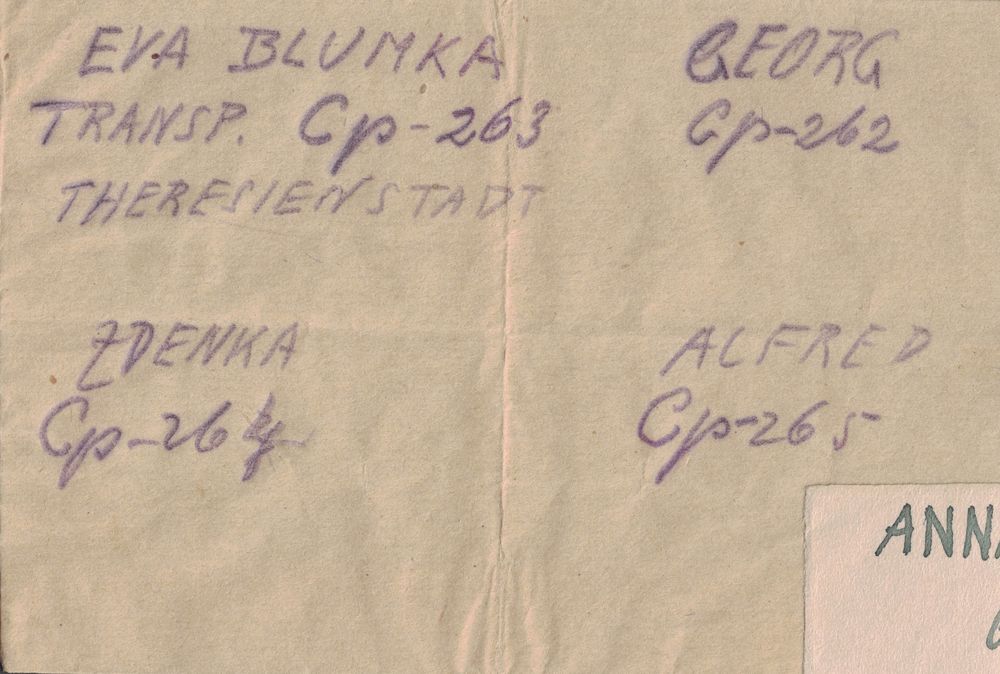 EVA BLUMKA
TRANSP. Cp-263
THERESIENSTADT
GEORG
Cp-262
ZDENKA
Cp-264
ALFRED
Cp-265